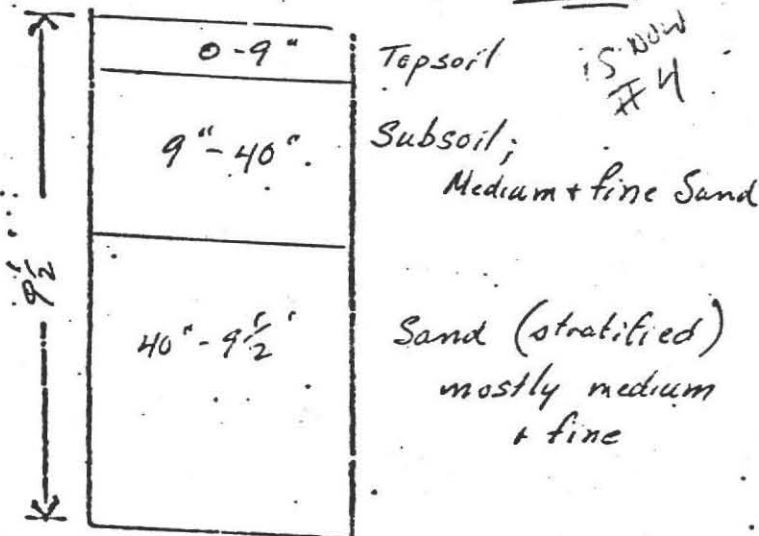 0-9" Topsoil
is now
#4
9"-40" Subsoil;
Medium + fine Sand
9 1/2'
40"-9 1/2' Sand (stratified)
mostly medium
+ fine